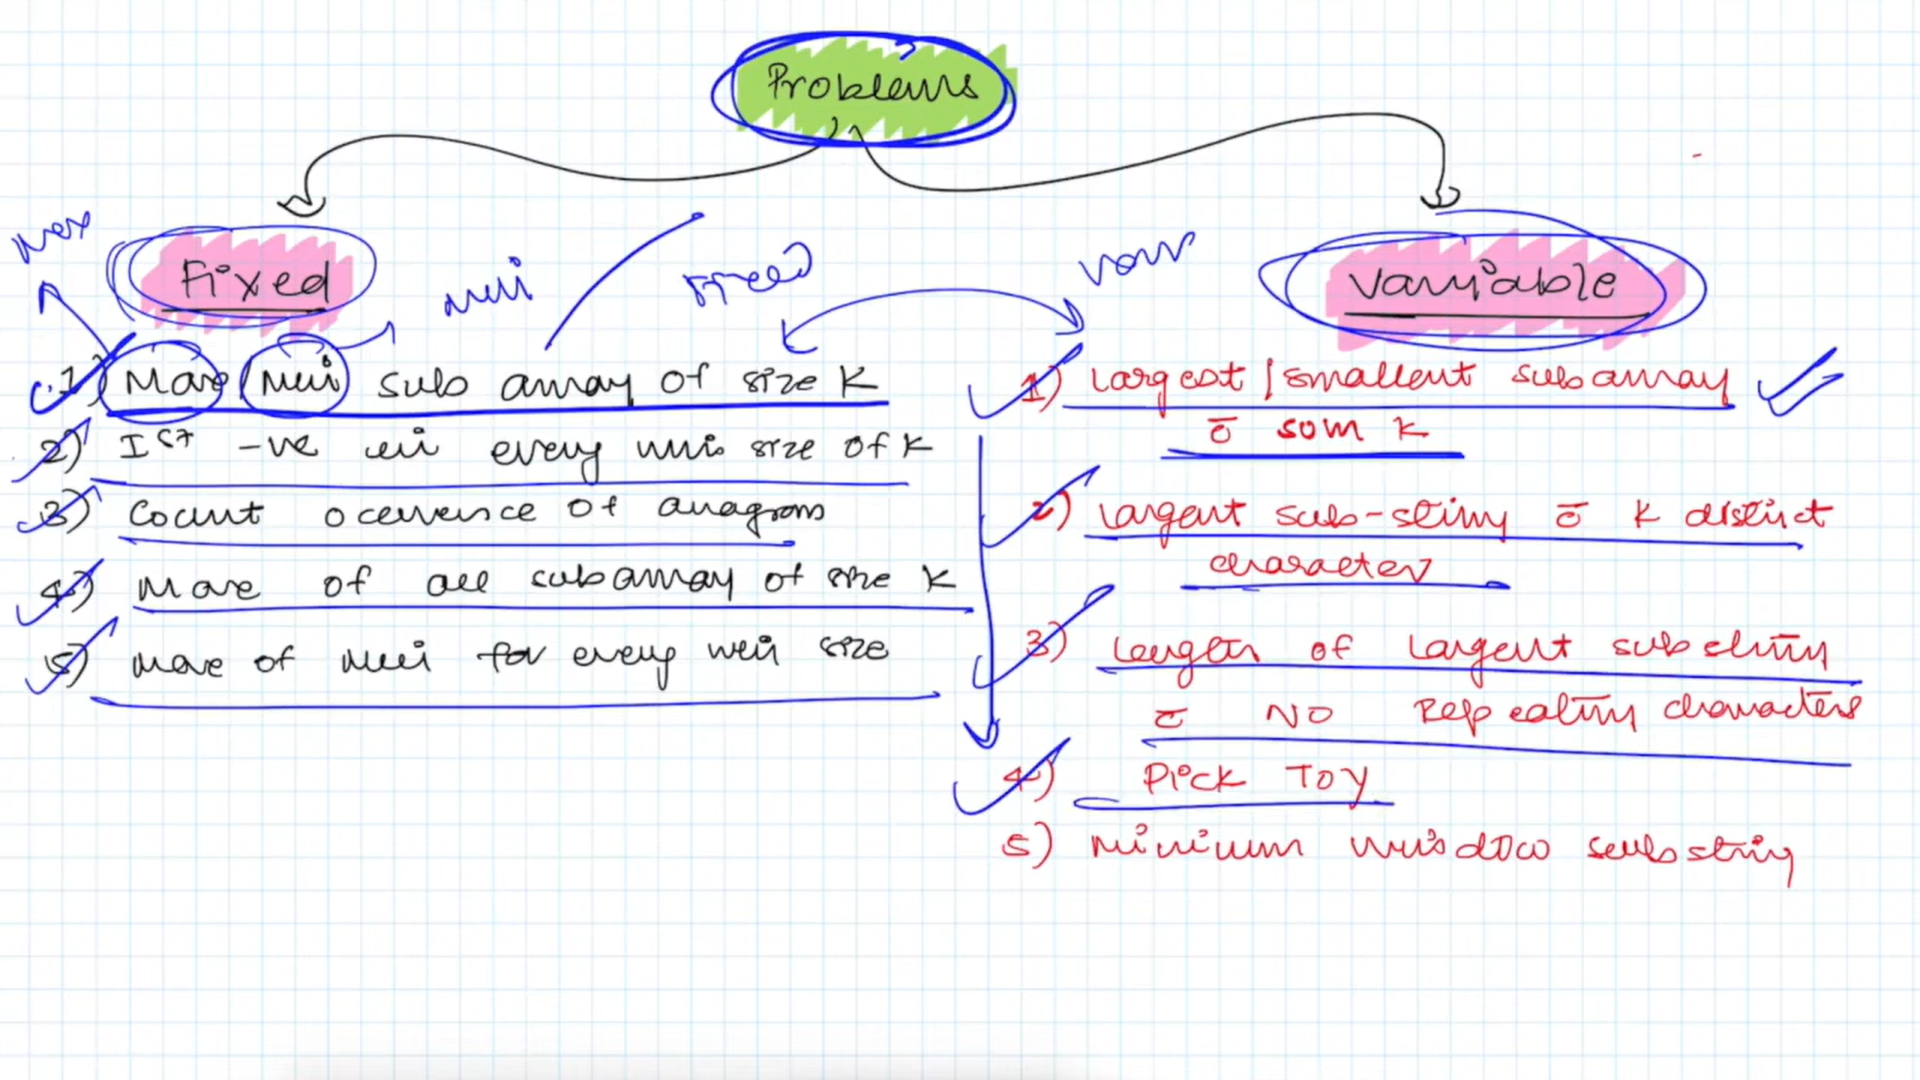 Problems
Fixed
Variable
Max
Min
Fixed
Var
1) Max Min sub array of size K
2) Ist -ve in every win size of K
3) Count occurence of anagram
4) Max of all subarray of size K
5) max of min for every win size
1) Largest / smallest subarray
c̄ sum K
2) Largest sub-string c̄ K distinct
character
3) Length of largest substring
c̄ NO Repeating characters
4) Pick TOY
5) Minimum window substring